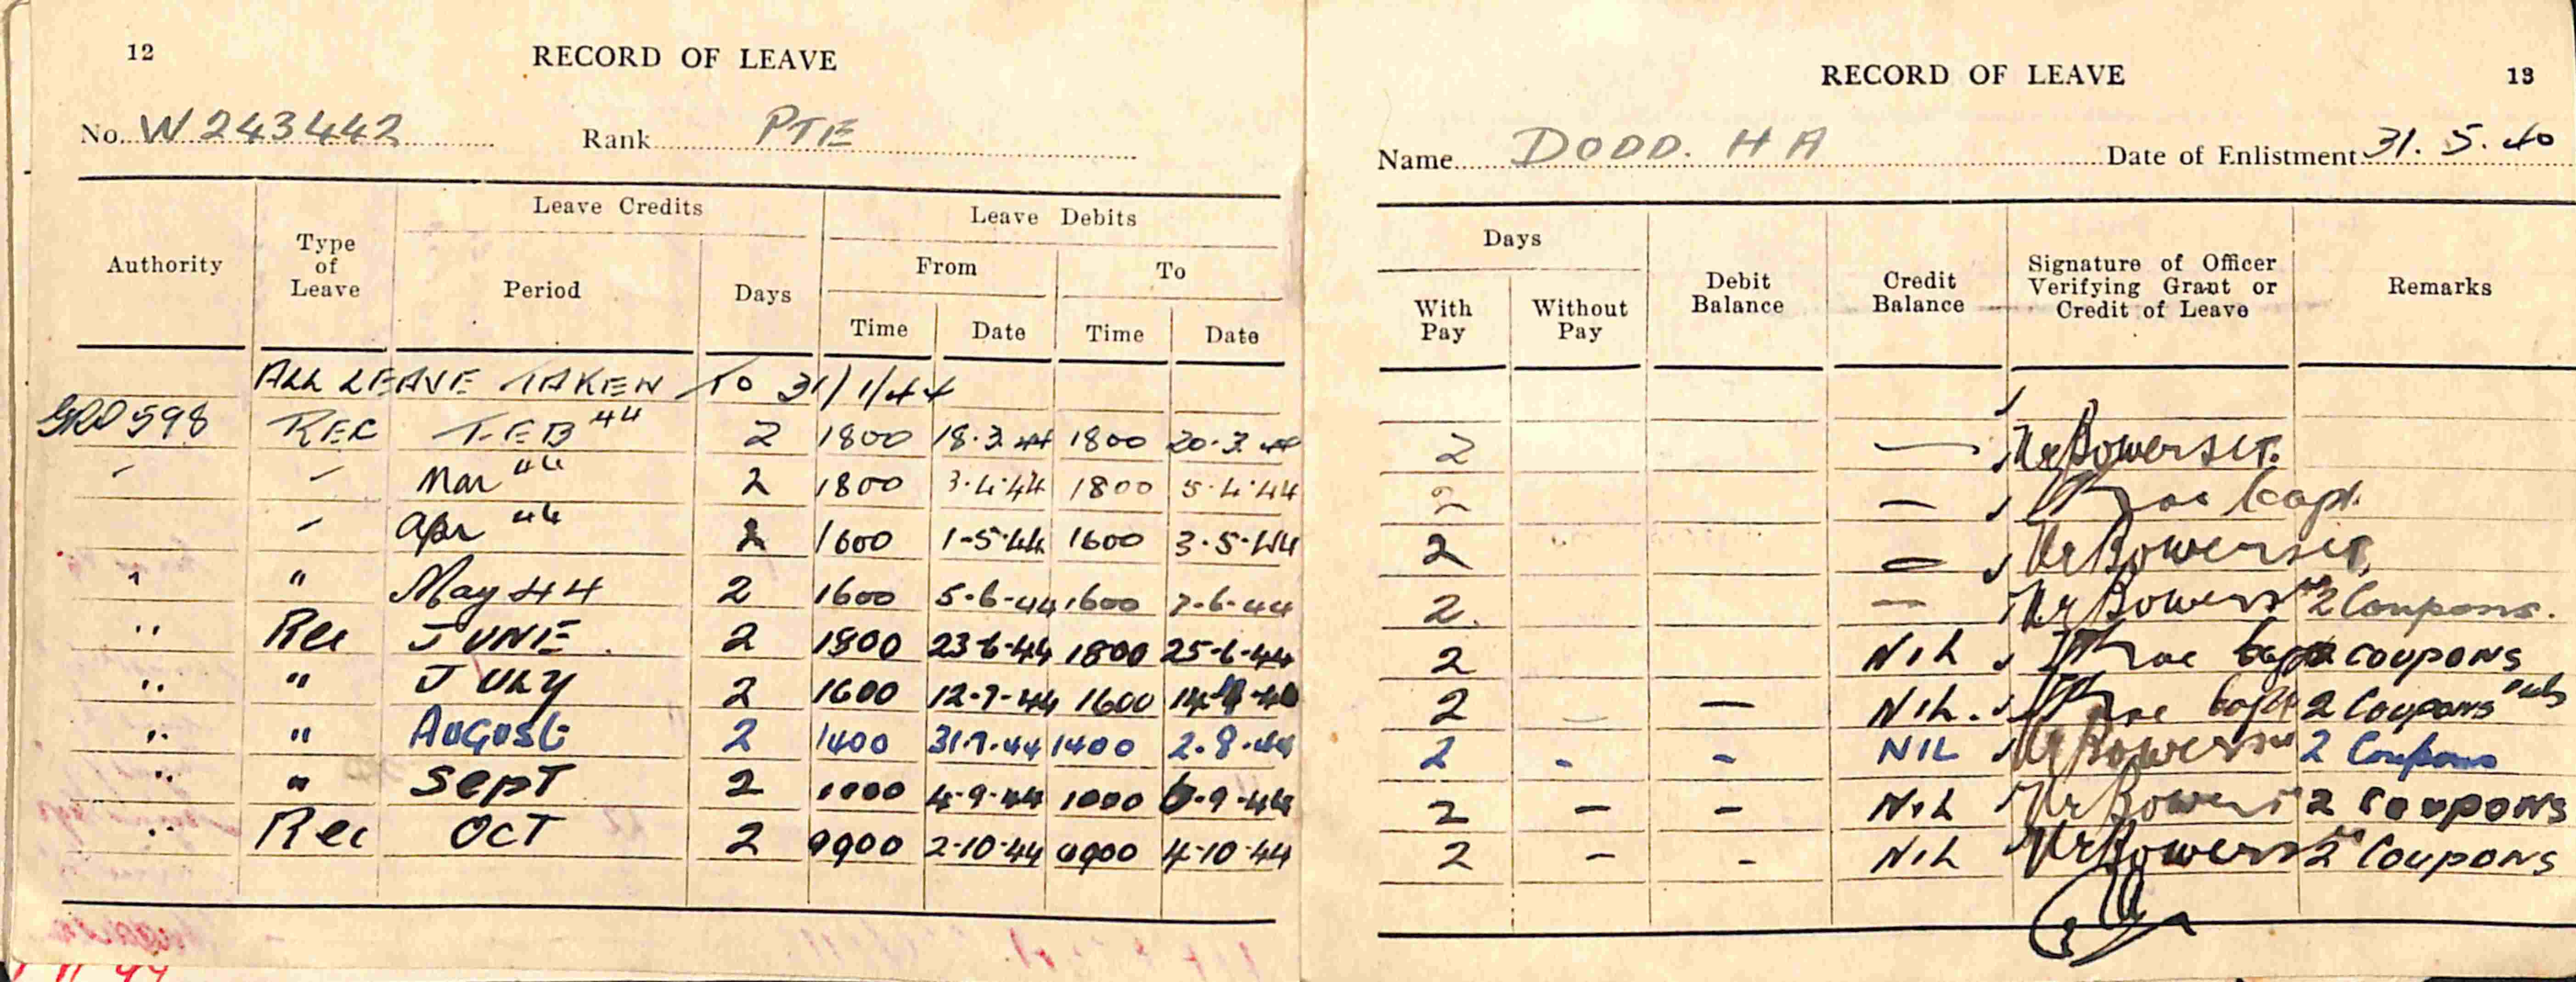 12
RECORD OF LEAVE
No. W243442 Rank PTE
Authority Type of Leave Leave Credits Leave Debits
Period Days From To
Time Date Time Date
ALL LEAVE TAKEN TO 31/1/44
GRO 598 REC FEB 44 2 1800 18.3.44 1800 20.3.44
" " Mar 44 2 1800 3.4.44 1800 5.4.44
" Apr 44 2 1600 1-5-44 1600 3.5.44
" " May 44 2 1600 5-6-44 1600 7-6-44
" Rec JUNE 2 1800 23-6-44 1800 25-6-44
" " JULY 2 1600 12-7-44 1600
" " AUGUST 2 1400 31.7.44 1400 2.8.44
" " SepT 2 1000 4-9-44 1000 6-9-44
" Rec OCT 2 0900 2-10-44 0900 4-10-44
RECORD OF LEAVE
13
Name DODD. H A Date of Enlistment 31.5.40
Days Debit Balance Credit Balance Signature of Officer Verifying Grant or Credit of Leave Remarks
With Pay Without Pay
2 —
2 — Capt.
2 —
2. — 2 Coupons.
2 NIL COUPONS
2 — NIL. 2 Coupons
2 - - NIL 2 Coupons
2 – – NIL 2 Coupons
2 – - NIL 2 Coupons